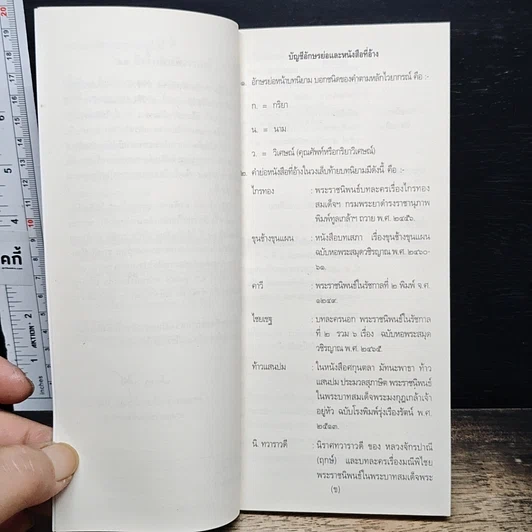 บัญชีอักษรย่อและหนังสือที่อ้าง
๑. อักษรย่อหน้าบทนิยาม บอกชนิดของคำตามหลักไวยากรณ์ คือ :-
ก. = กริยา
น. = นาม
ว. = วิเศษณ์ (คุณศัพท์หรือกริยาวิเศษณ์)
๒. คำย่อหนังสือที่อ้างในวงเล็บท้ายบทนิยามมีดังนี้ คือ :-
ไกรทอง : พระราชนิพนธ์บทละครเรื่องไกรทอง
สมเด็จฯ กรมพระยาดำรงราชานุภาพ
พิมพ์ทูลเกล้าฯ ถวาย พ.ศ. ๒๔๕๖.
ขุนช้างขุนแผน : หนังสือบทเสภา เรื่องขุนช้างขุนแผน
ฉบับหอพระสมุดวชิรญาณ พ.ศ. ๒๔๖๐-
๖๑.
คาวี : พระราชนิพนธ์ในรัชกาลที่ ๒ พิมพ์ จ.ศ.
๑๒๔๙.
ไชยเชฐ : บทละครนอก พระราชนิพนธ์ในรัชกาล
ที่ ๒ รวม ๖ เรื่อง ฉบับหอพระสมุด
วชิรญาณ พ.ศ. ๒๔๖๕.
ท้าวแสนปม : ในหนังสือศกุนตลา มัทนะพาธา ท้าว
แสนปม ประมวลสุภาษิต พระราชนิพนธ์
ในพระบาทสมเด็จพระมงกุฎเกล้าเจ้า
อยู่หัว ฉบับโรงพิมพ์รุ่งเรืองรัตน์ พ.ศ.
๒๕๑๓.
นิ. ทวาราวดี : นิราศทวาราวดี ของ หลวงจักรปาณี
(ฤกษ์) และบทละครเรื่องมณีพิไชย
พระราชนิพนธ์ในพระบาทสมเด็จพระ
(ข)